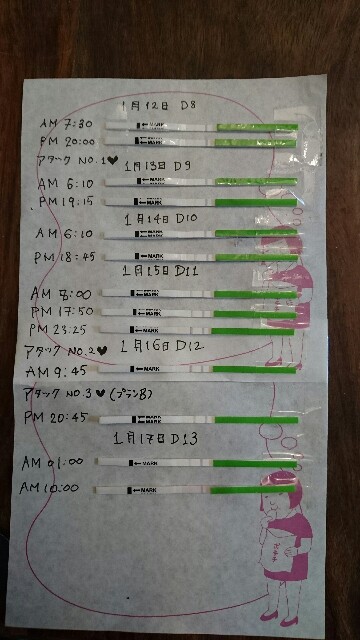 1月12日 D8
AM 7:30 ←MARK
PM 20:00 ←MARK
アタック NO.1♥
1月13日 D9
AM 6:10 ←MARK
PM 19:15 ←MARK
1月14日 D10
AM 6:10 ←MARK
PM 18:45 ←MARK
1月15日 D11
AM 8:00 ←MARK
PM 17:50 ←MARK
PM 23:25 ←MARK
アタック NO.2♥
1月16日 D12
AM 9:45 ←MARK
アタック NO.3♥(プランB)
PM 20:45 ←MARK
1月17日 D13
AM 01:00 ←MARK
AM 10:00 ←MARK